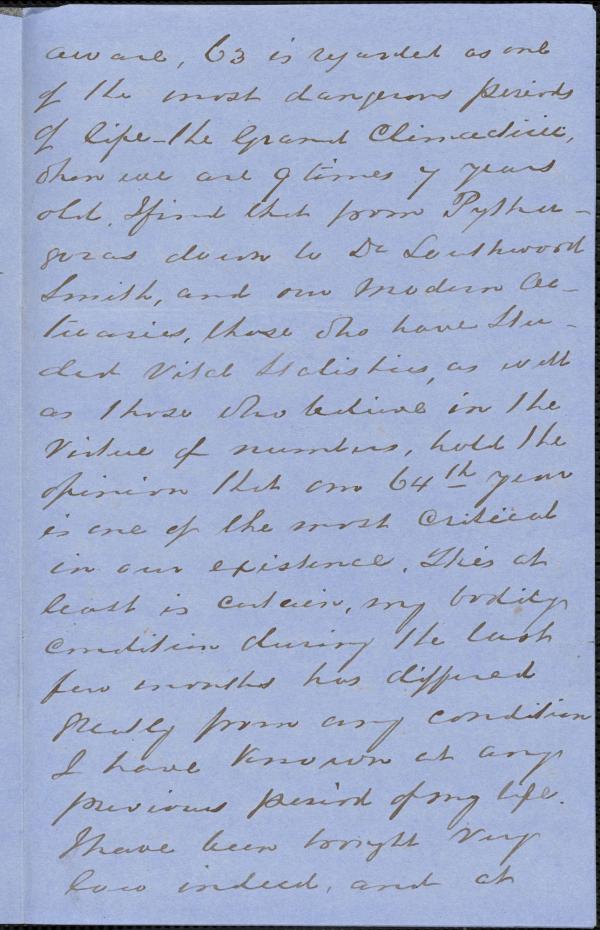 aware, 63 is regarded as one
of the most dangerous periods
of life - the Grand Climacteric,
when we are 9 times 7 years
old. I find that from Pytha-
goras down to Dr Southwood
Smith, and our modern Ac-
tuaries, those who have stu-
died Vital Statistics, as well
as those who believe in the
Virtue of numbers, hold the
opinion that our 64th year
is one of the most critical
in our existence. This at
least is certain, my bodily
condition during the last
few months has differed
greatly from any condition
I have known at any
previous period of my life.
I have been brought very
low indeed, and at